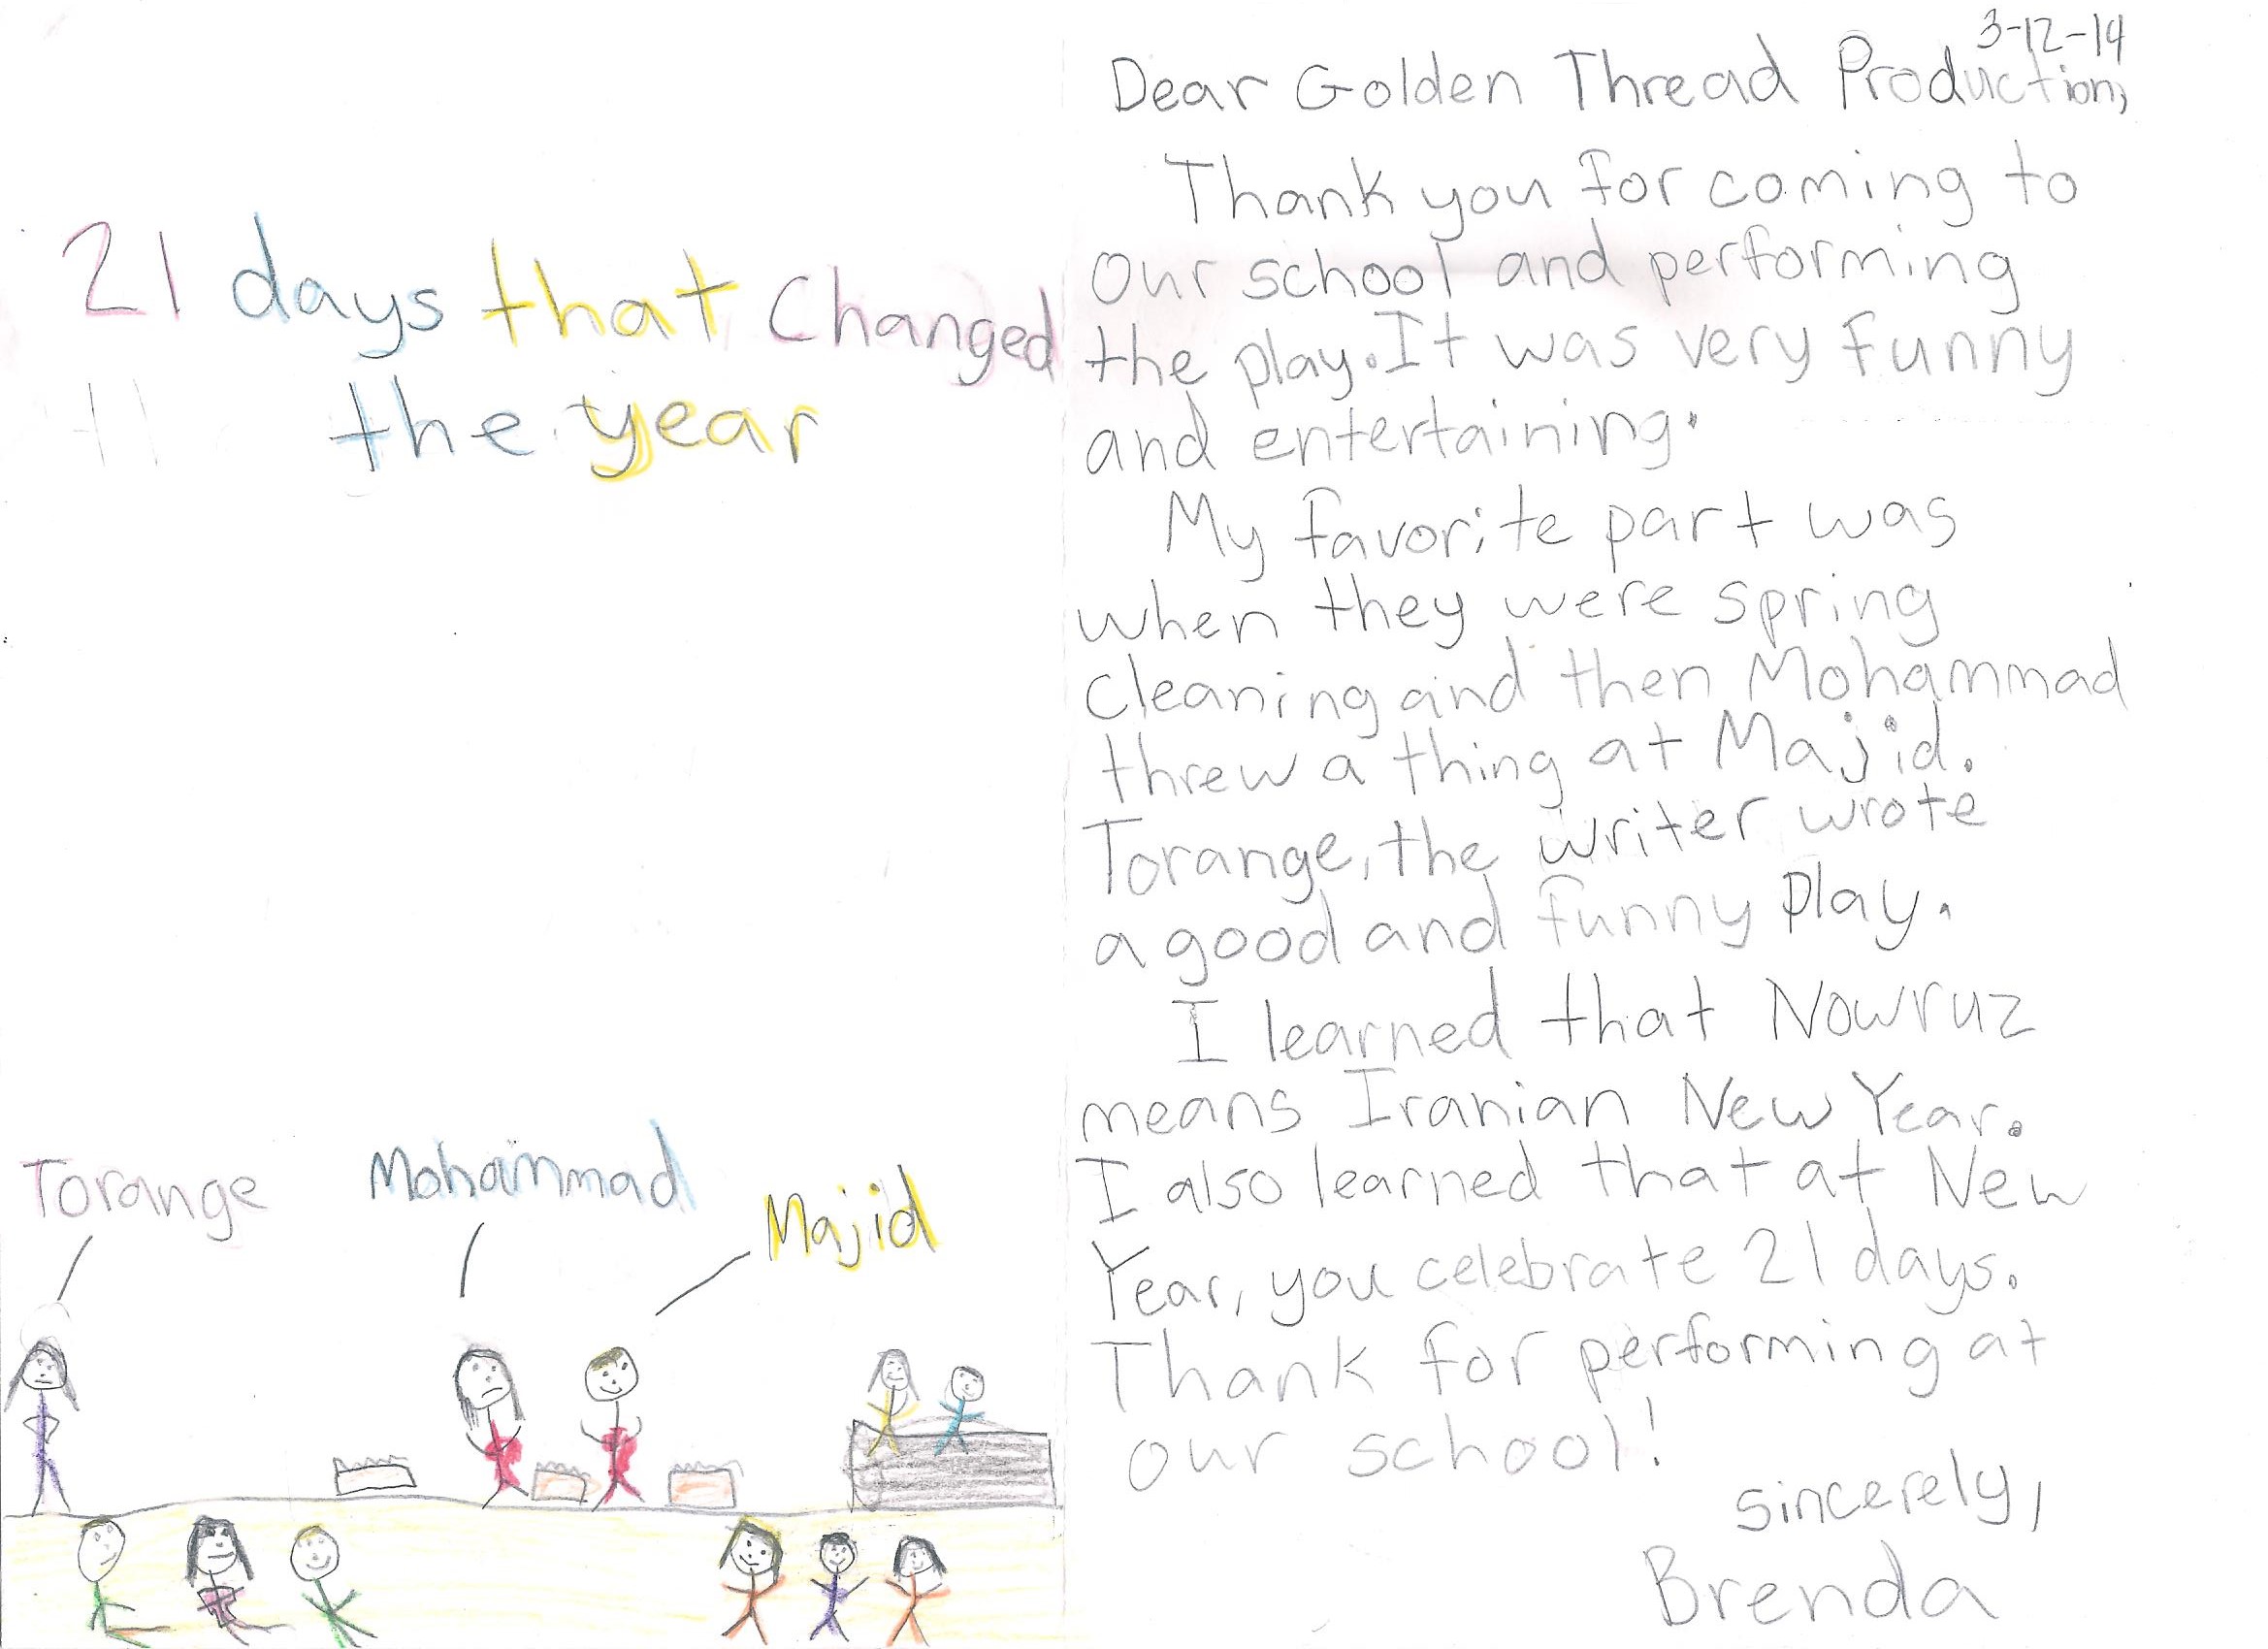 21 days that Changed
the year
Torange
Mohammad
Majid
3-12-14
Dear Golden Thread Production,
Thank you for coming to
our school and performing
the play. It was very funny
and entertaining.
My favorite part was
when they were spring
cleaning and then Mohammad
threw a thing at Majid.
Torange, the writer wrote
a good and funny play.
I learned that Nowruz
means Iranian New Year.
I also learned that at New
Year, you celebrate 21 days.
Thank for performing at
our school!
sincerely,
Brenda